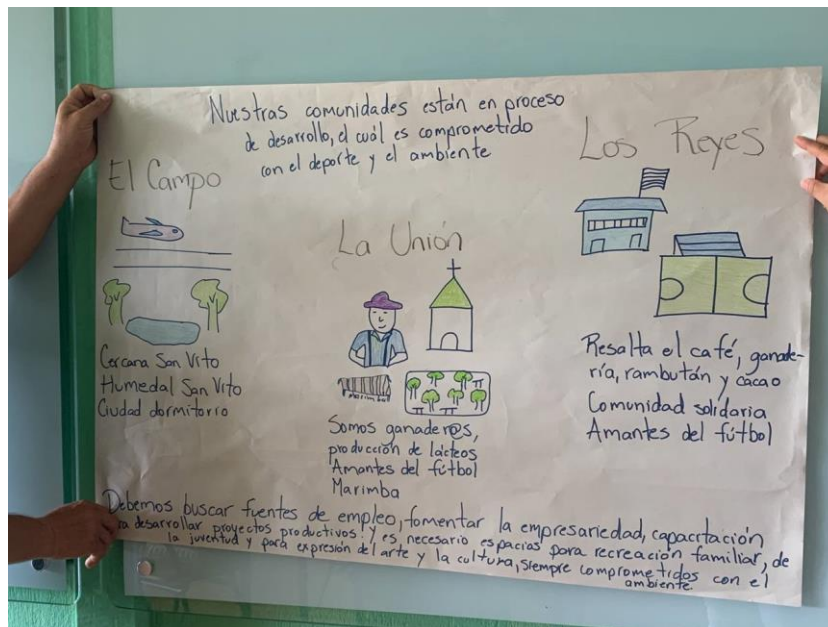 Nuestras comunidades están en proceso
de desarrollo, el cuál es comprometido
con el deporte y el ambiente
El Campo
Cercana San Vito
Humedal San Vito
Ciudad dormitorio
La Unión
Marimba
Somos ganader@s,
producción de lácteos
Amantes del fútbol
Marimba
Los Reyes
Resalta el café, ganade-
ría, rambután y cacao
Comunidad solidaria
Amantes del fútbol
Debemos buscar fuentes de empleo, fomentar la empresariedad, capacitación
ra desarrollar proyectos productivos! y es necesario espacios para recreación familiar, de
la juventud y para expresión del arte y la cultura, siempre comprometidos con el
ambiente